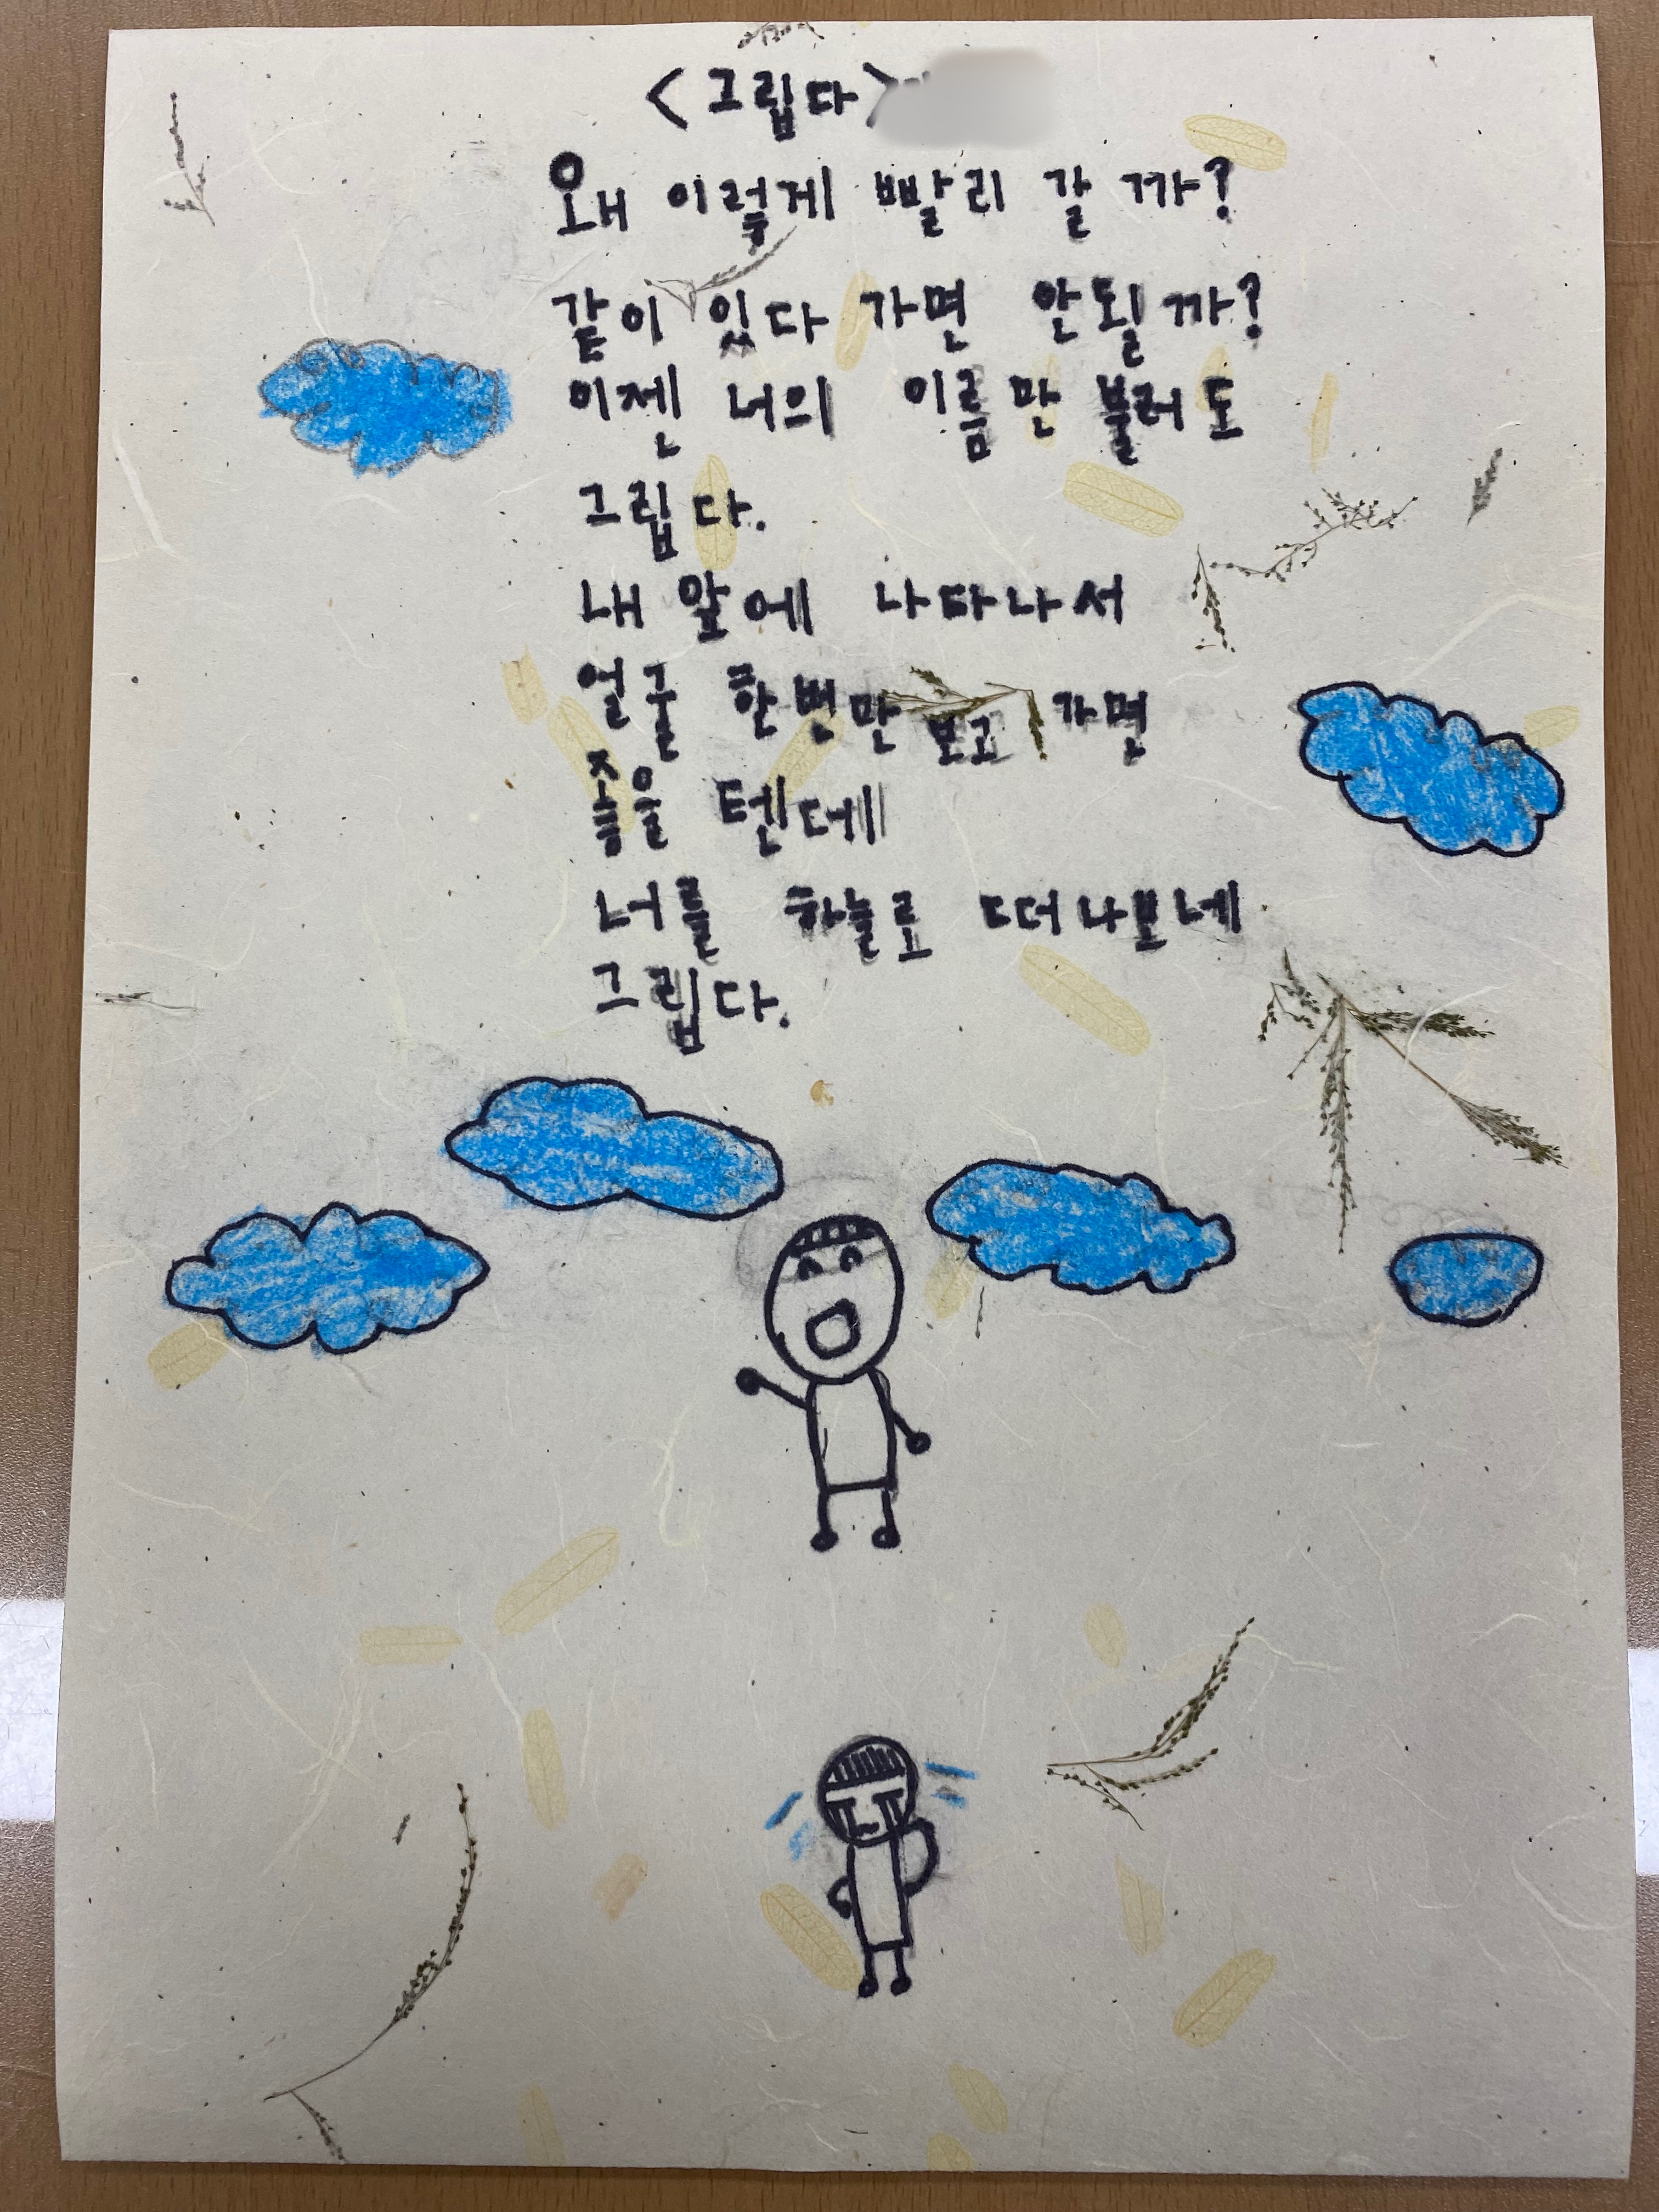 <그립다>
왜 이렇게 빨리 갈 까?
같이 있다 가면 안될까?
이젠 너의 이름만 불러도
그립다.
내 앞에 나타나서
얼굴 한번만 보고 가면
좋을 텐데
너를 하늘로 떠나보네
그립다.